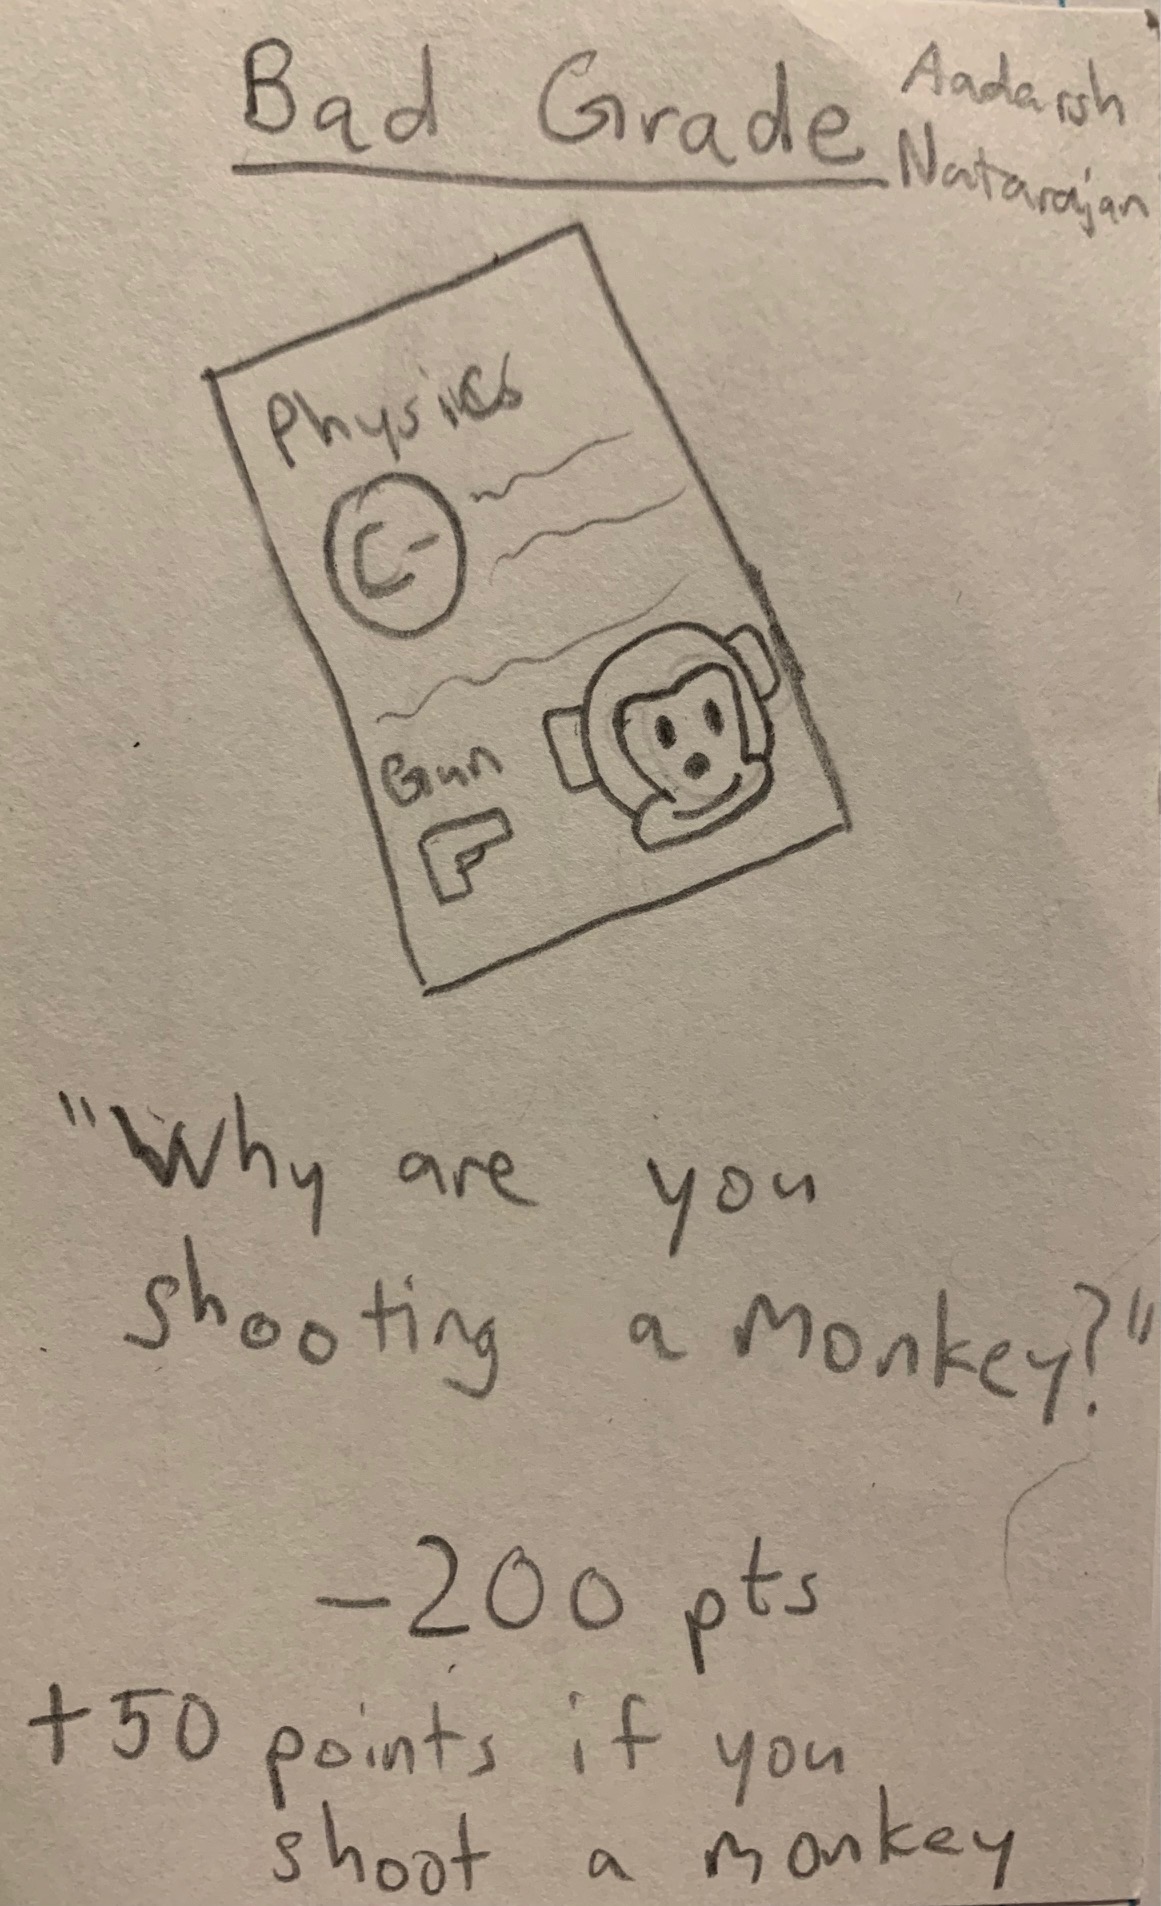 Bad Grade
Aadarsh
Natarajan
Physics
C-
Gun
"Why are you
shooting a monkey?"
-200 pts
+50 points if you
shoot a monkey